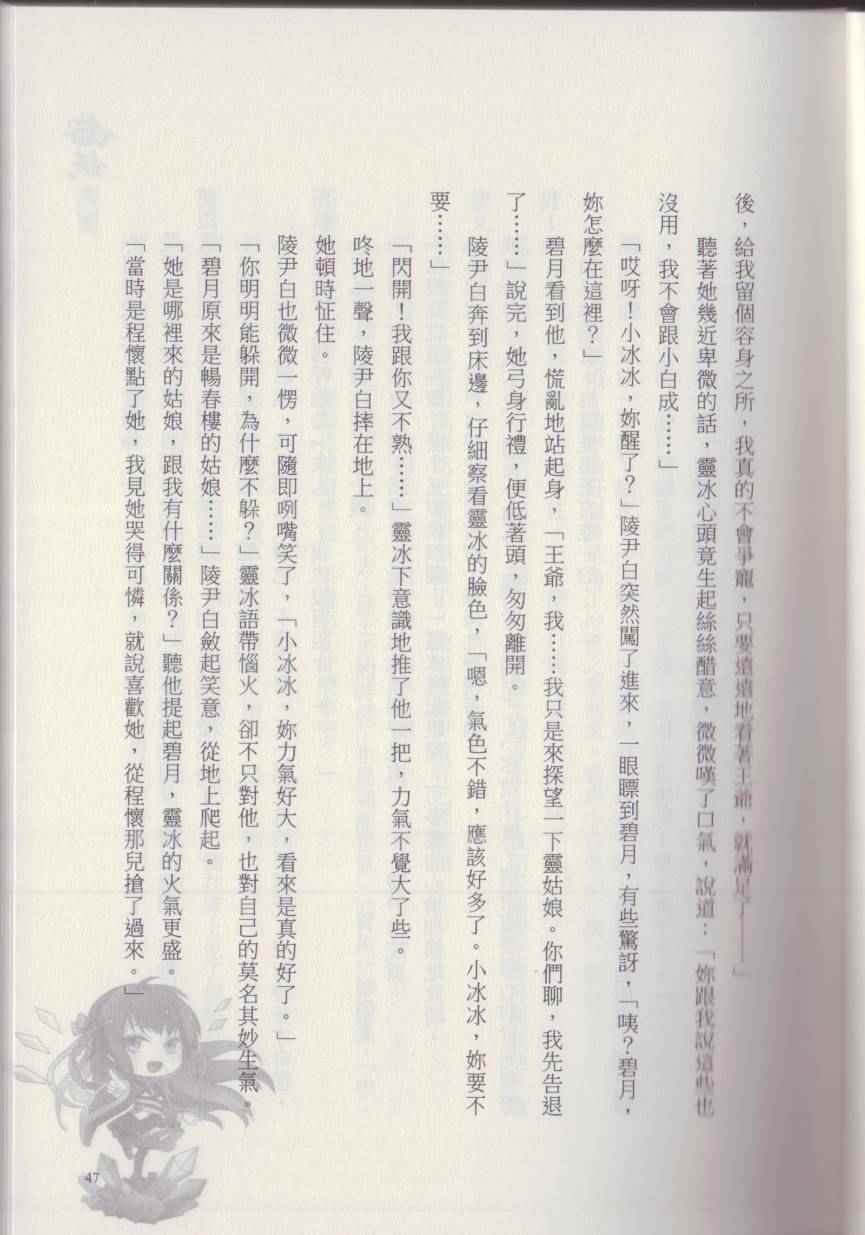 後，給我留個容身之所，我真的不會爭寵，只要遠遠地看著王爺，就滿足了——」
聽著她幾近卑微的話，靈冰心頭竟生起絲絲醋意，微微嘆了口氣，說道：「妳跟我說這些也
沒用，我不會跟小白成……」
「哎呀！小冰冰，妳醒了？」陵尹白突然闖了進來，一眼瞟到碧月，有些驚訝，「咦？碧月，
妳怎麼在這裡？」
碧月看到他，慌亂地站起身，「王爺，我……我只是來探望一下靈姑娘。你們聊，我先告退
了……」說完，她弓身行禮，便低著頭，匆匆離開。
陵尹白奔到床邊，仔細察看靈冰的臉色，「嗯，氣色不錯，應該好多了。小冰冰，妳要不
要……」
「閃開！我跟你又不熟……」靈冰下意識地推了他一把，力氣不覺大了些。
咚地一聲，陵尹白摔在地上。
她頓時怔住。
陵尹白也微微一愣，可隨即咧嘴笑了，「小冰冰，妳力氣好大，看來是真的好了。」
「你明明能躲開，為什麼不躲？」靈冰語帶惱火，卻不只對他，也對自己的莫名其妙生氣。
「碧月原來是暢春樓的姑娘……」陵尹白斂起笑意，從地上爬起。
「她是哪裡來的姑娘，跟我有什麼關係？」聽他提起碧月，靈冰的火氣更盛。
「當時是程懷點了她，我見她哭得可憐，就說喜歡她，從程懷那兒搶了過來。」
47